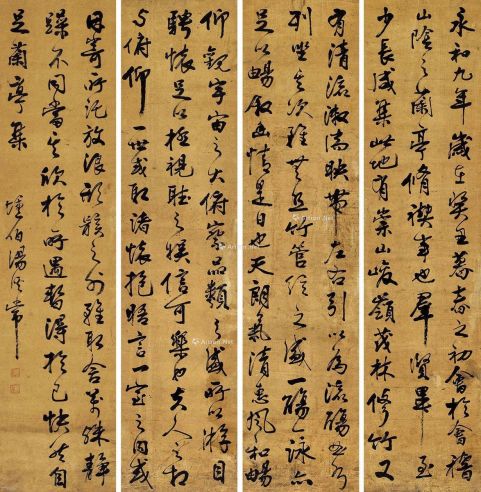 永和九年歲在癸丑暮春之初會於會稽
山陰之蘭亭脩禊事也群賢畢至
少長咸集此地有崇山峻嶺茂林修竹又
有清流激湍映帶左右引以為流觴曲水
列坐其次雖無絲竹管絃之盛一觴一詠亦
足以暢敘幽情是日也天朗氣清惠風和暢
仰觀宇宙之大俯察品類之盛所以游目
騁懷足以極視聽之娛信可樂也夫人之相
與俯仰一世或取諸懷抱晤言一室之內或
因寄所託放浪形骸之外雖取舍萬殊靜
躁不同當其欣於所遇暫得於己快然自
足蘭亭集
Artron.Net